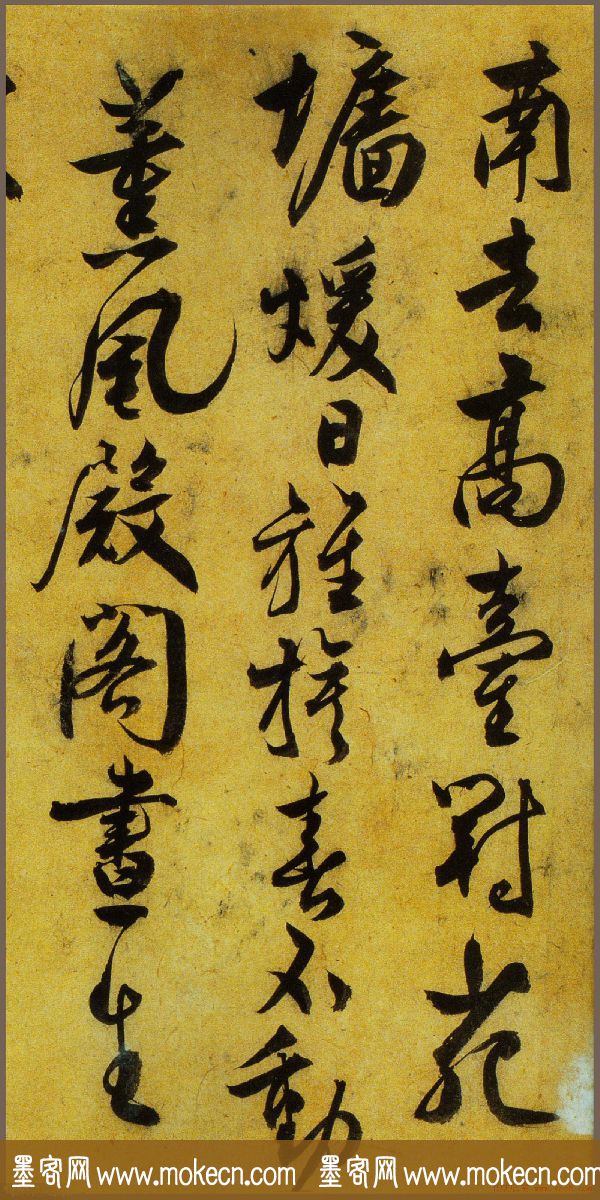 南去高臺對苑
墻煖日旌旂春不動
薰風殿閣晝生
墨客网 www.mokecn.com 墨客网 www.mokecn.com